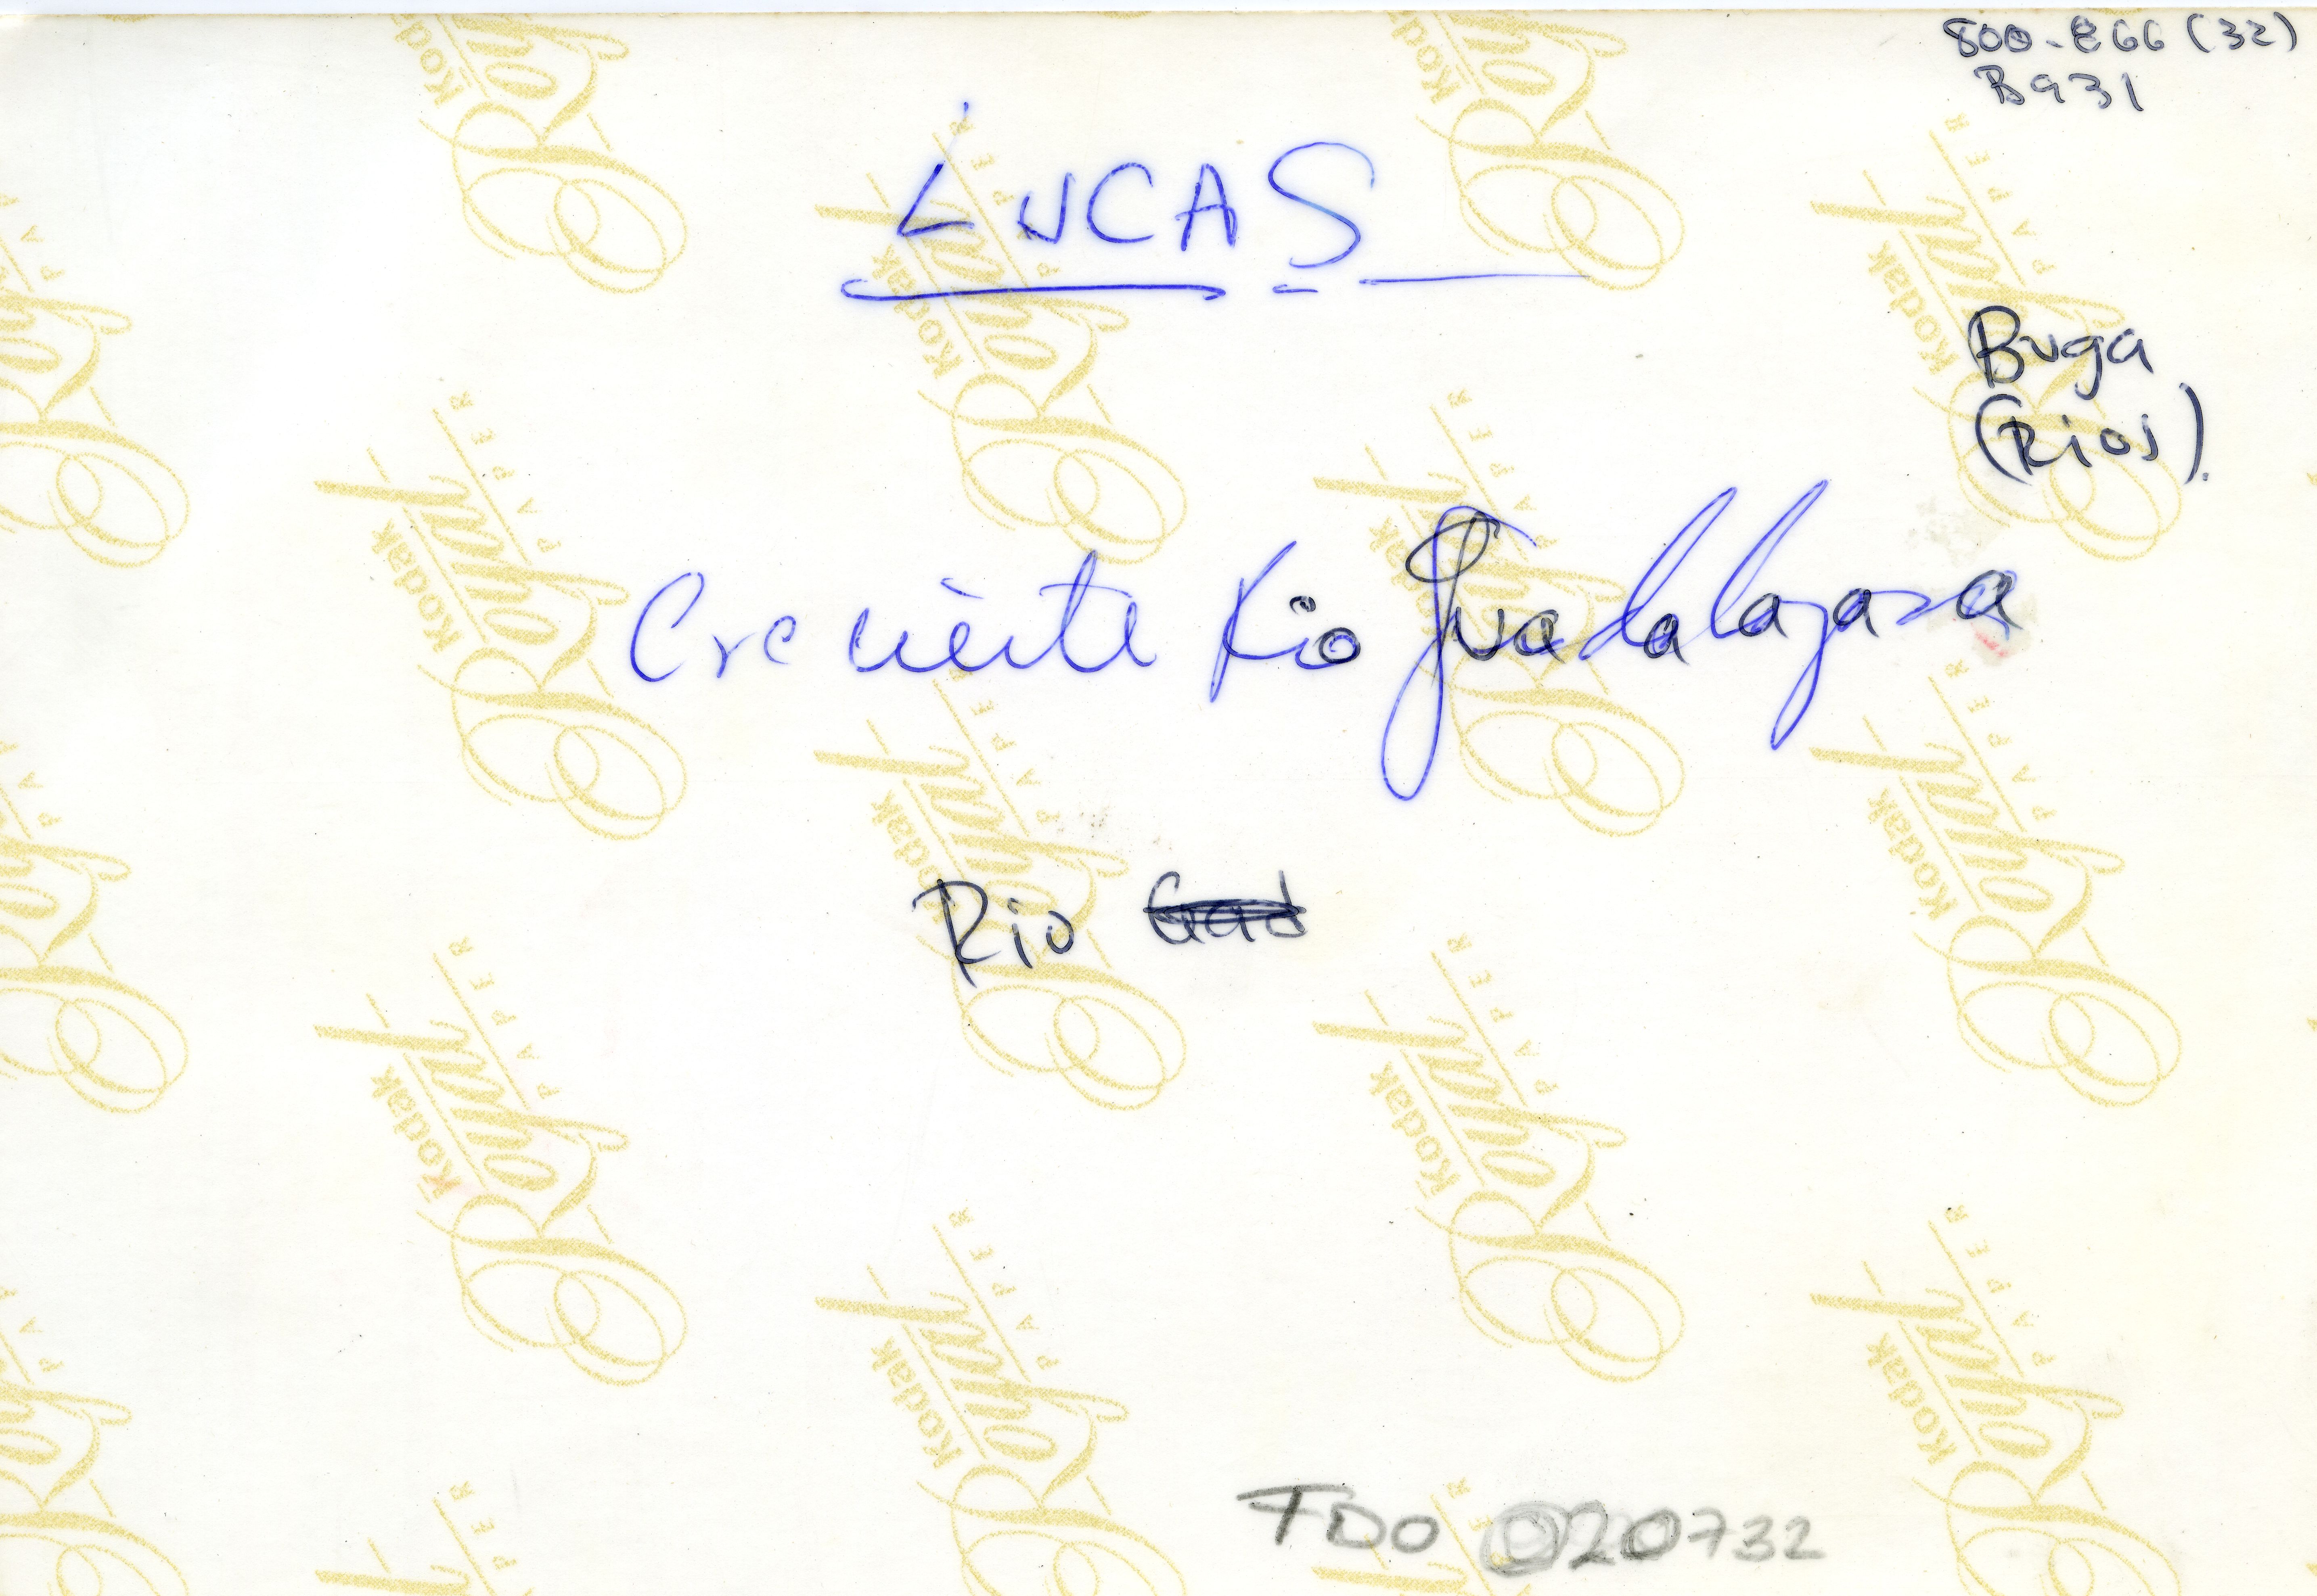 800-866 (32)
B931
LUCAS
Buga
(Rios).
Creciente Rio Guadalajara
Rio Guad
TDO 020732
Kodak
Royal
PAPER